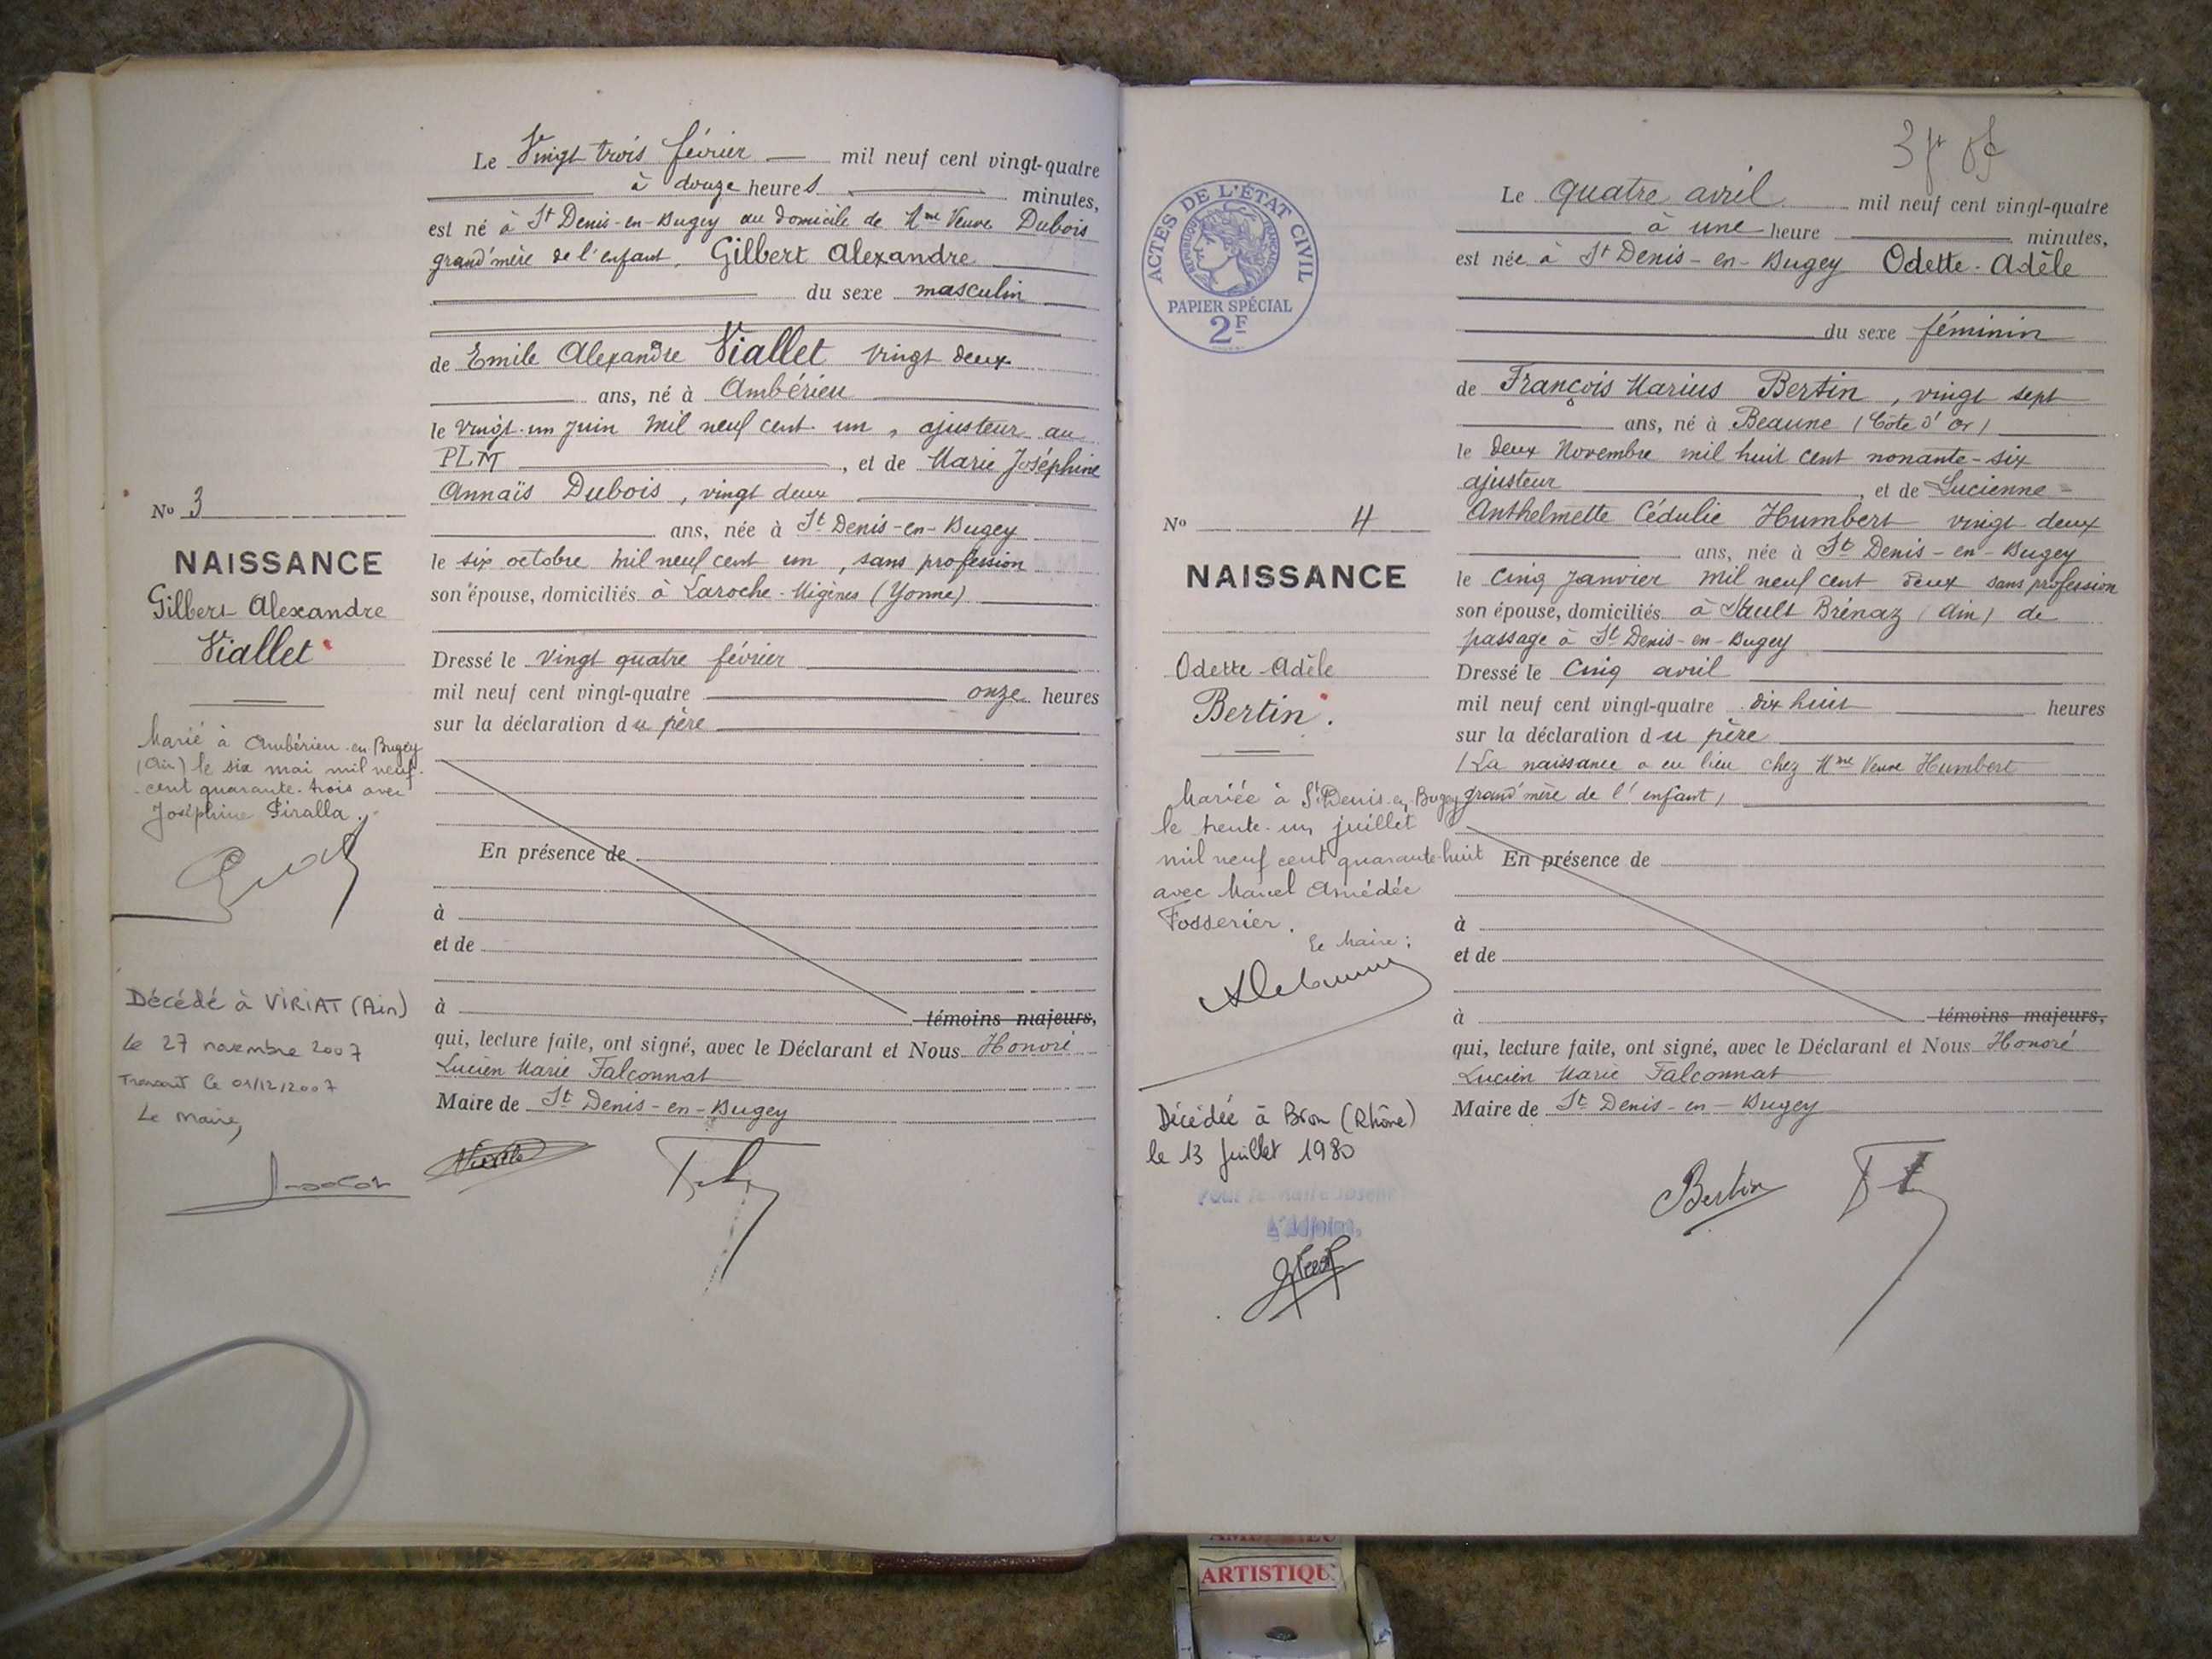 Le Vingt trois février mil neuf cent vingt-quatre
à douze heures minutes,
est né à St Denis-en-Bugey au domicile de Mme Veuve Dubois
grand'mère de l'enfant, Gilbert Alexandre
du sexe masculin
de Emile Alexandre Viallet vingt deux
ans, né à Ambérieu
le vingt-un juin mil neuf cent un, ajusteur au
PLM, et de Marie Joséphine
Annaïs Dubois, vingt deux
ans, née à St Denis-en-Bugey
le six octobre mil neuf cent un, sans profession
son épouse, domiciliés à Laroche-Migènes (Yonne)
Dressé le vingt quatre février
mil neuf cent vingt-quatre onze heures
sur la déclaration du père
En présence de
à
et de
à témoins majeurs,
qui, lecture faite, ont signé, avec le Déclarant et Nous Honoré
Lucien Marie Falconnat
Maire de St Denis-en-Bugey
No 3
NAISSANCE
Gilbert Alexandre
Viallet
Marié à Ambérieu-en-Bugey
(Ain) le six mai mil neuf
cent quarante-trois avec
Joséphine Piralla.
Décédé à VIRIAT (Ain)
le 27 novembre 2007
Transcrit le 01/12/2007
Le Maire,
ACTES DE L'ÉTAT CIVIL
RÉPUBLIQUE FRANÇAISE
PAPIER SPÉCIAL
2F
Le quatre avril mil neuf cent vingt-quatre
à une heure minutes,
est née à St Denis-en-Bugey Odette-Adèle
du sexe féminin
de François Marius Bertin, vingt sept
ans, né à Beaune (Côte d'Or)
le deux Novembre mil huit cent nonante-six
ajusteur, et de Lucienne-
Anthelmette Cédulie Humbert vingt deux
ans, née à St Denis-en-Bugey
le cinq Janvier mil neuf cent deux sans profession
son épouse, domiciliés à Sault Brénaz (Ain) de
passage à St Denis-en-Bugey
Dressé le cinq avril
mil neuf cent vingt-quatre dix huit heures
sur la déclaration du père
(La naissance a eu lieu chez Mme Veuve Humbert
grand'mère de l'enfant)
En présence de
à
et de
à témoins majeurs,
qui, lecture faite, ont signé, avec le Déclarant et Nous Honoré
Lucien Marie Falconnat
Maire de St Denis-en-Bugey
Bertin
No 4
NAISSANCE
Odette-Adèle
Bertin.
Mariée à St Denis-en-Bugey
le trente-un juillet
mil neuf cent quarante-huit
avec Marcel Amédée
Fosserier.
Le Maire:
Décédée à Bron (Rhône)
le 13 Juillet 1980
L'Adjoint,
ARTISTIQU